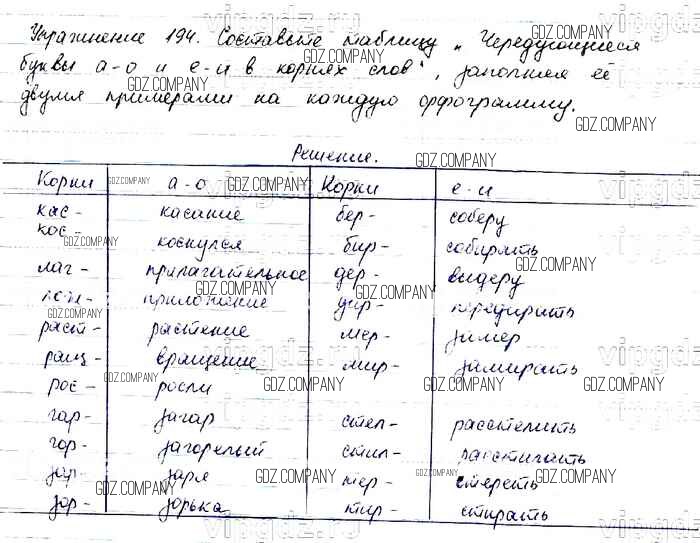 Упражнение 194. Составьте таблицу „Чередующиеся
буквы а-о и е-и в корнях слов", заполняя её
двумя примерами на каждую орфограмму.
Решение.
Корни а-о Корни е-и
кас- касание бер- соберу
кос- коснулся бир- собирать
лаг- прилагательное дер- выдеру
лож- приложение дир-
раст- растение мер- замер
ращ- вращение мир- замирать
рос- росли
гар- загар стел- расстелить
гор- загорелый стил-
зар- заря тер- стереть
зор- зорька тир- стирать
GDZ.COMPANY
vipgdz.ru